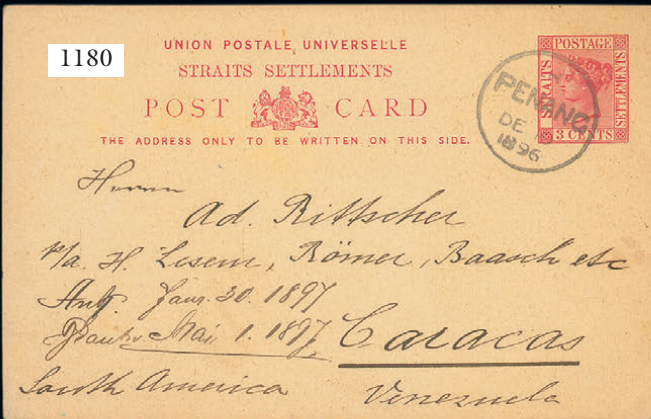 1180
UNION POSTALE UNIVERSELLE
STRAITS SETTLEMENTS
POST CARD
THE ADDRESS ONLY TO BE WRITTEN ON THIS SIDE.
STRAITS
POSTAGE
SETTLEMENTS
3 CENTS
PENANG
DE
1896
Herrn
Ad. Rittscher
p/a. H. Lesem, Römer, Baasch etc
Antf. Janr. 30. 1897
Mai 1. 1897
Caracas
South America
Venezuela